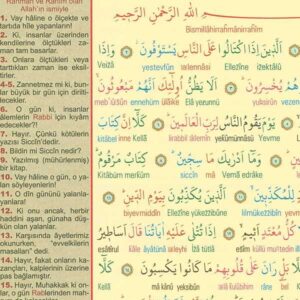 Rahman ve Rahim olan
Allah'ın ismiyle
1. Vay hâline o ölçekte ve
tartıda hîle yapanların!
2. Ki, insanlar üzerinden
kendilerine ölçtükleri za-
man tam basarlar.
3. Onlara ölçtükleri veya
tarttıkları zaman ise eksil-
tirler.
4-5. Zannetmez mi ki, bun-
lar büyük bir gün için diril-
tilecekler.
6. O gün ki, insanlar
âlemlerin Rabbi için kıyâm
edecekler?!
7. Hayır, Çünkü kötülerin
yazısı Siccîn'dedir.
8. Bildin mi Siccîn nedir?
9. Yazılmış (mühürlenmiş)
bir kitap.
10. Vay hâline o gün, o ya-
lan söyleyenlerin!
11. O dîn gününü yalanla-
yanların!
12. Ki onu ancak, herbir
haddini aşan, günaha düş-
kün olan yalanlar.
13. Karşısında âyetlerimiz
okunurken, "evvelkilerin
masalları" dedi.
14. Hayır, fakat onların ka-
zançları, kalplerinin üzerine
pas bağlamıştır.
15. Hayır, Muhakkak ki on-
lar, o gün Rablerinden mah-
بِسْمِ اللهِ الرَّحْمٰنِ الرَّحِيمِ
Bismillâhirrahmânirrahîm
اَلَّذِينَ اِذَا اكْتَالُوا عَلَى النَّاسِ يَسْتَوْفُونَ ۞ وَاِذَا
Ve izâ yestevfûn alennâsi Ellezîne izektâlû
يُخْسِرُونَ ۞ اَلَا يَظُنُّ اُولٰٓئِكَ اَنَّهُمْ مَبْعُوثُونَ ۞
meb'ûsûn ennehüm ülâike Elâ yezunnü yuhsirûn
يَوْمَ يَقُومُ النَّاسُ لِرَبِّ الْعَالَمِينَ ۞ كَلَّا اِنَّ كِتَابَ
kitâbe inne Kellâ lirabbil âlemîn yekûmünnâsü Yevme
وَمَا اَدْرٰيكَ مَا سِجِّينٌ ۞ كِتَابٌ مَرْقُومٌ
Kitâbüm merkûm mâ siccîn Vemâ edrâke
لِلْمُكَذِّبِينَ ۞ اَلَّذِينَ يُكَذِّبُونَ بِيَوْمِ الدِّينِ ۞
biyevmiddîn Ellezîne yükezzibûne lilmükezzibîn
كُلُّ مُعْتَدٍ اَثِيمٍ ۞ اِذَا تُتْلٰى عَلَيْهِ اٰيَاتُنَا قَالَ اَسَاطِيرُ
esâtîrul kâle âyâtünâ aleyhi İzâ tütlâ esîm küllü mu'tedin
بَلْ رَانَ عَلٰى قُلُوبِهِمْ مَا كَانُوا يَكْسِبُونَ ۞ كَلَّا